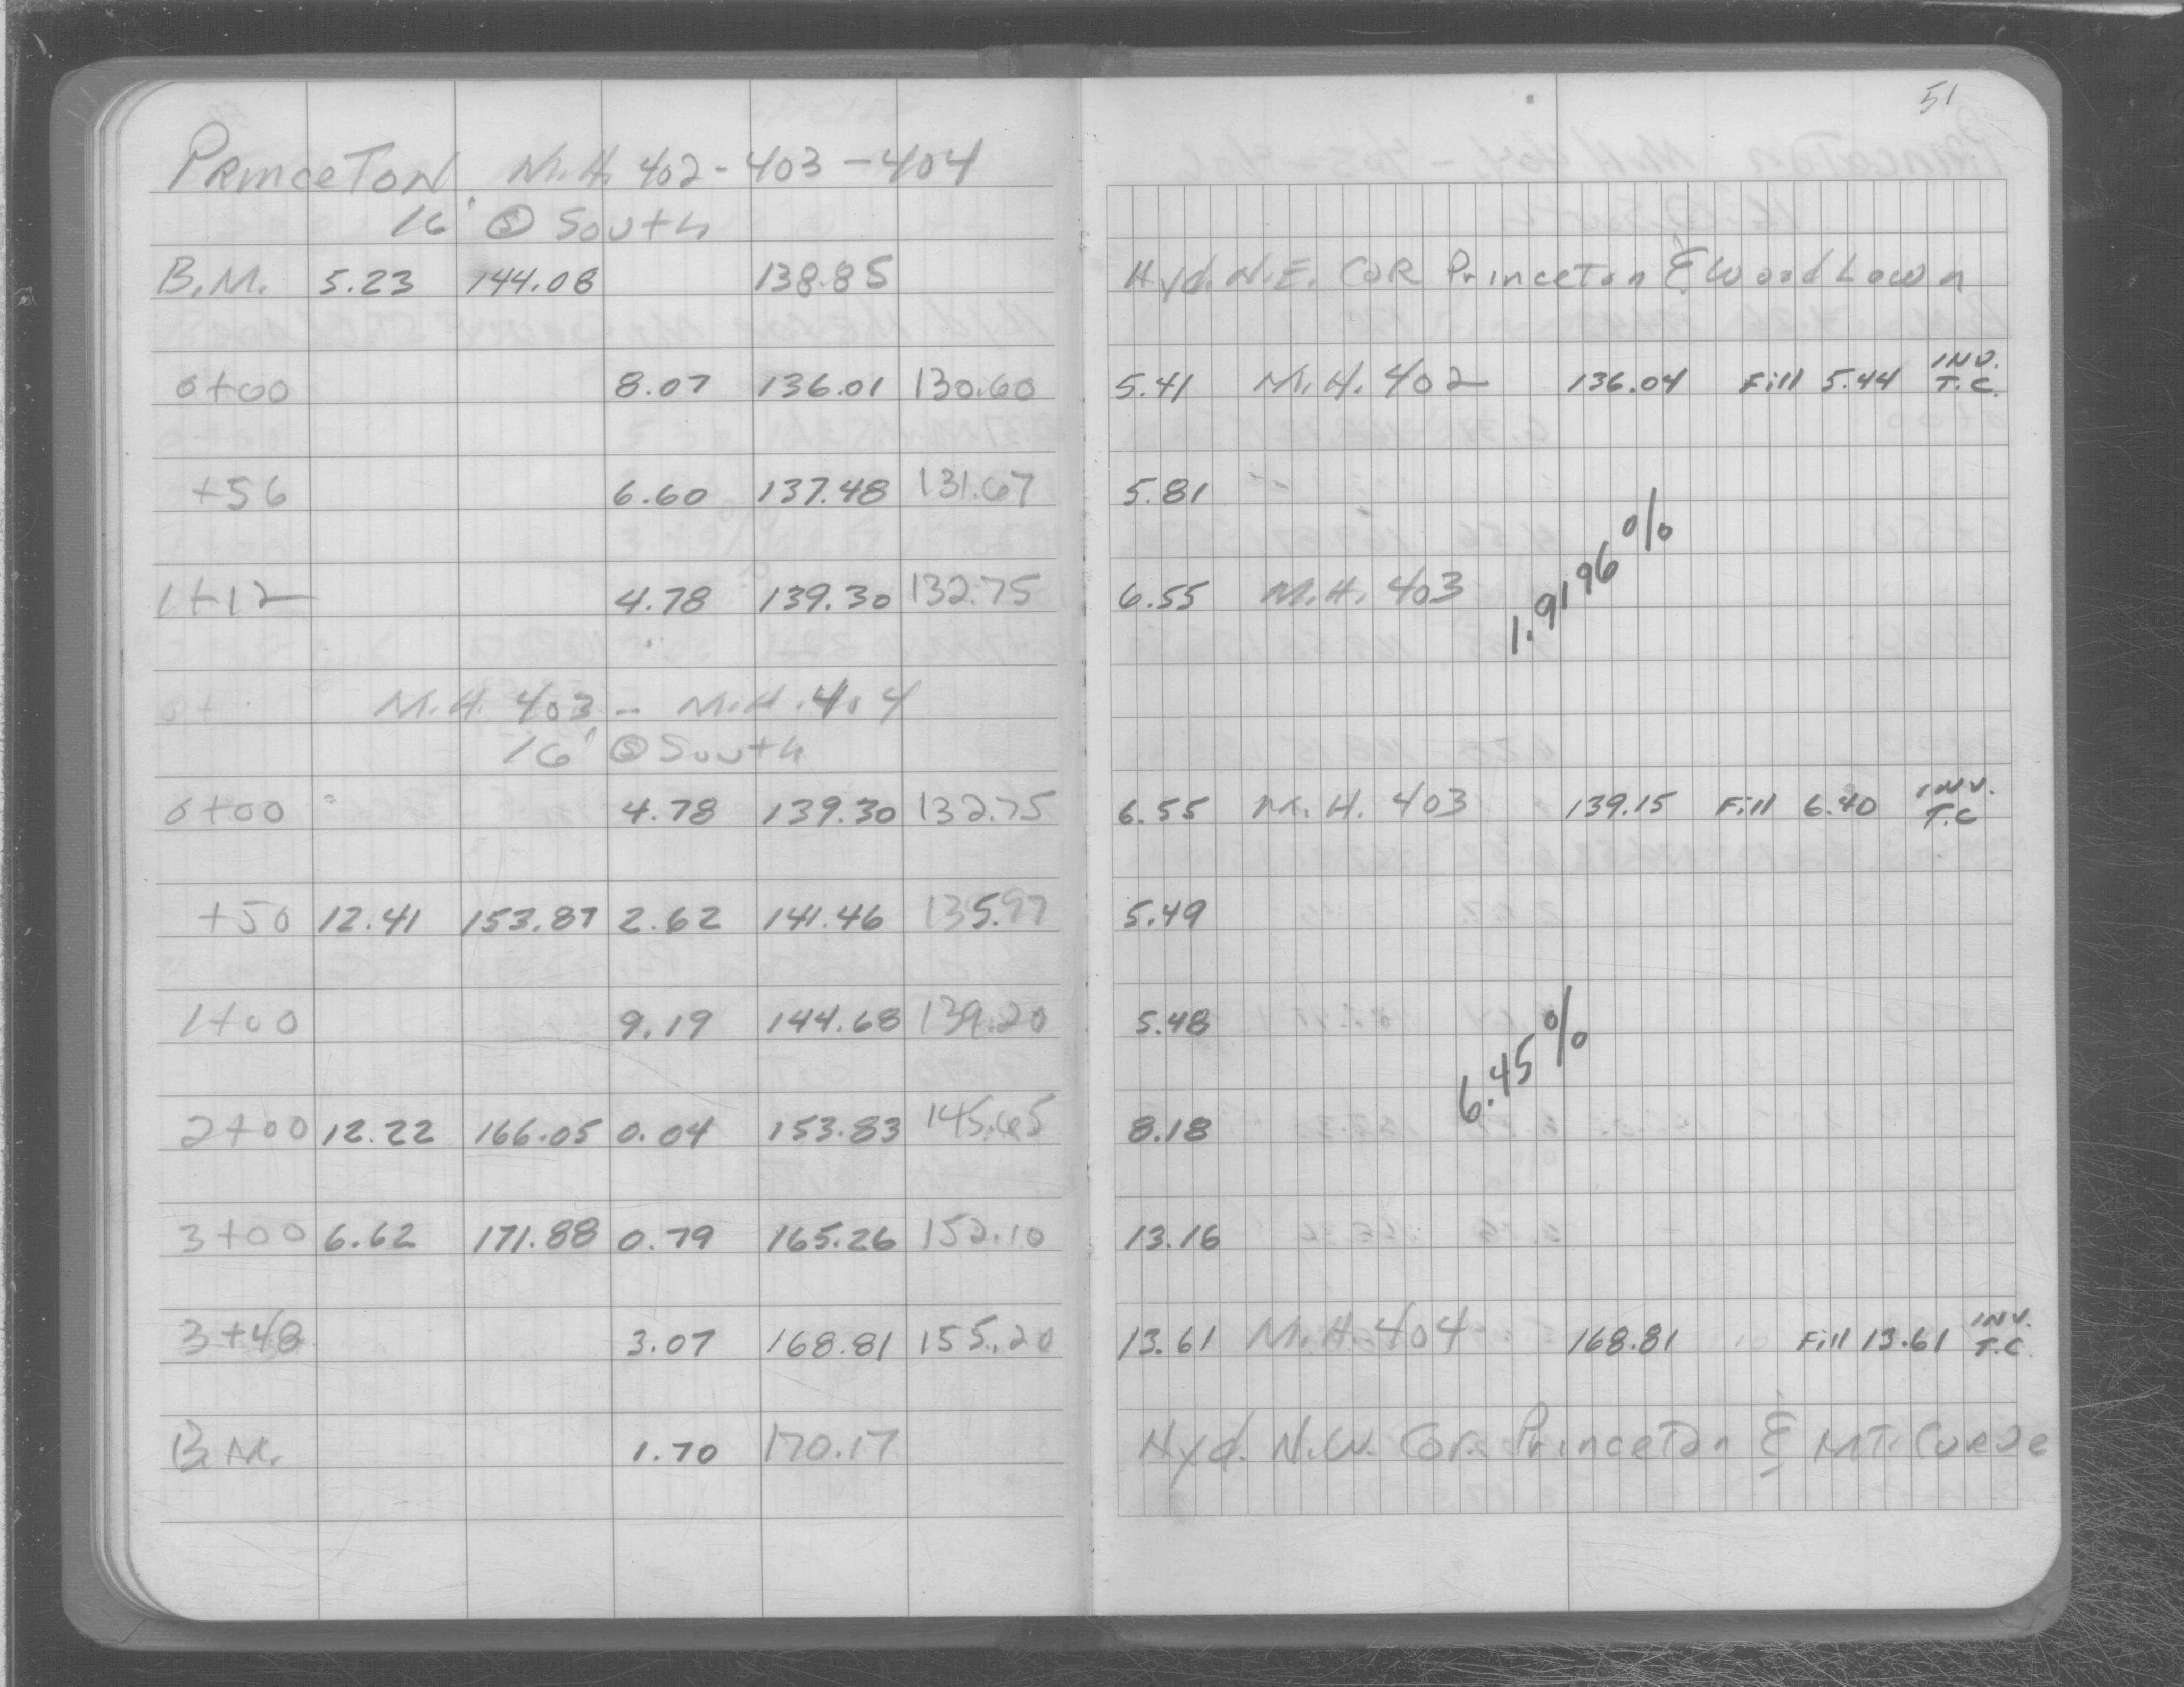 51
PRINCETON M.H. 402 - 403 - 404
16' @ South
B.M. 5.23 144.08 138.85 Hyd. N.E. COR Princeton & Woodlawn
0+00 8.07 136.01 130.60 5.41 M.H. 402 136.04 Fill 5.44 INV. T.C.
+56 6.60 137.48 131.67 5.81
1+12 4.78 139.30 132.75 6.55 M.H. 403
1.9196%
M.H. 403 - M.H. 404
16' @ South
0+00 4.78 139.30 132.75 6.55 M.H. 403 139.15 Fill 6.40 INV. T.C
+50 12.41 153.87 2.62 141.46 135.97 5.49
1+00 9.19 144.68 139.20 5.48
6.45%
2+00 12.22 166.05 0.04 153.83 145.65 8.18
3+00 6.62 171.88 0.79 165.26 152.10 13.16
3+48 3.07 168.81 155.20 13.61 M.H. 404 168.81 Fill 13.61 INV. T.C.
B.M. 1.70 170.17 Hyd. N.W. Cor. Princeton & MT.